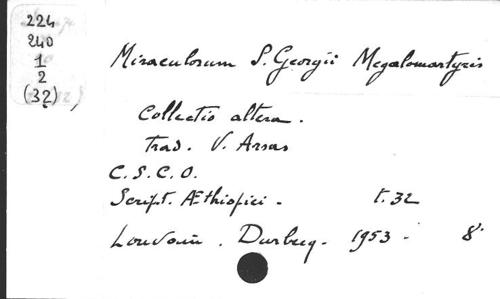 224
240
1
2
(32)
Miraculorum S. Georgii Megalomartyris
Collectio altera.
Trad. V. Arras
C.S.C.O.
Script. Æthiopici - t. 32
Louvain. Durbecq - 1953 - 8°